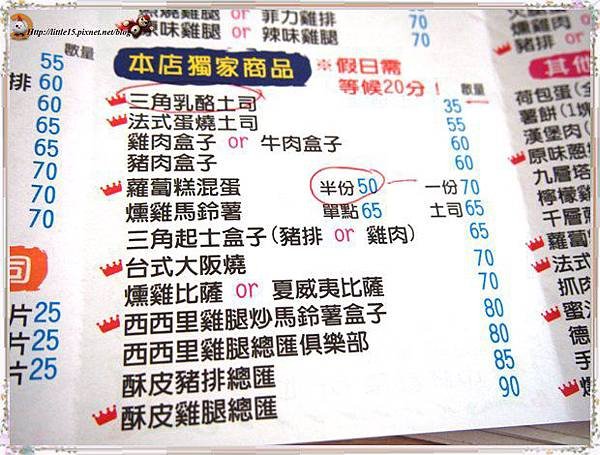 Http://little15.pixnet.net/blog
燻雞腿 or 菲力雞排 70
原味雞腿 or 辣味雞腿 70
數量
55
排 60
60
65
65
70
70
70
司
片25
片25
片25
本店獨家商品
※假日需
等候20分！
數量
三角乳酪土司 35
法式蛋燒土司 55
雞肉盒子 or 牛肉盒子 60
豬肉盒子 60
蘿蔔糕混蛋 半份50 一份70
燻雞馬鈴薯 單點65 土司65
三角起士盒子(豬排 or 雞肉) 65
台式大阪燒 70
燻雞比薩 or 夏威夷比薩 70
西西里雞腿炒馬鈴薯盒子 80
西西里雞腿總匯俱樂部 80
酥皮豬排總匯 85
酥皮雞腿總匯 90
燻雞肉
豬排 or
其他
荷包蛋(
薯餅(1塊
漢堡肉(
原味蔥
九層塔
檸檬雞
千層
蘿蔔
法式
抓肉
蜜汁
德
手